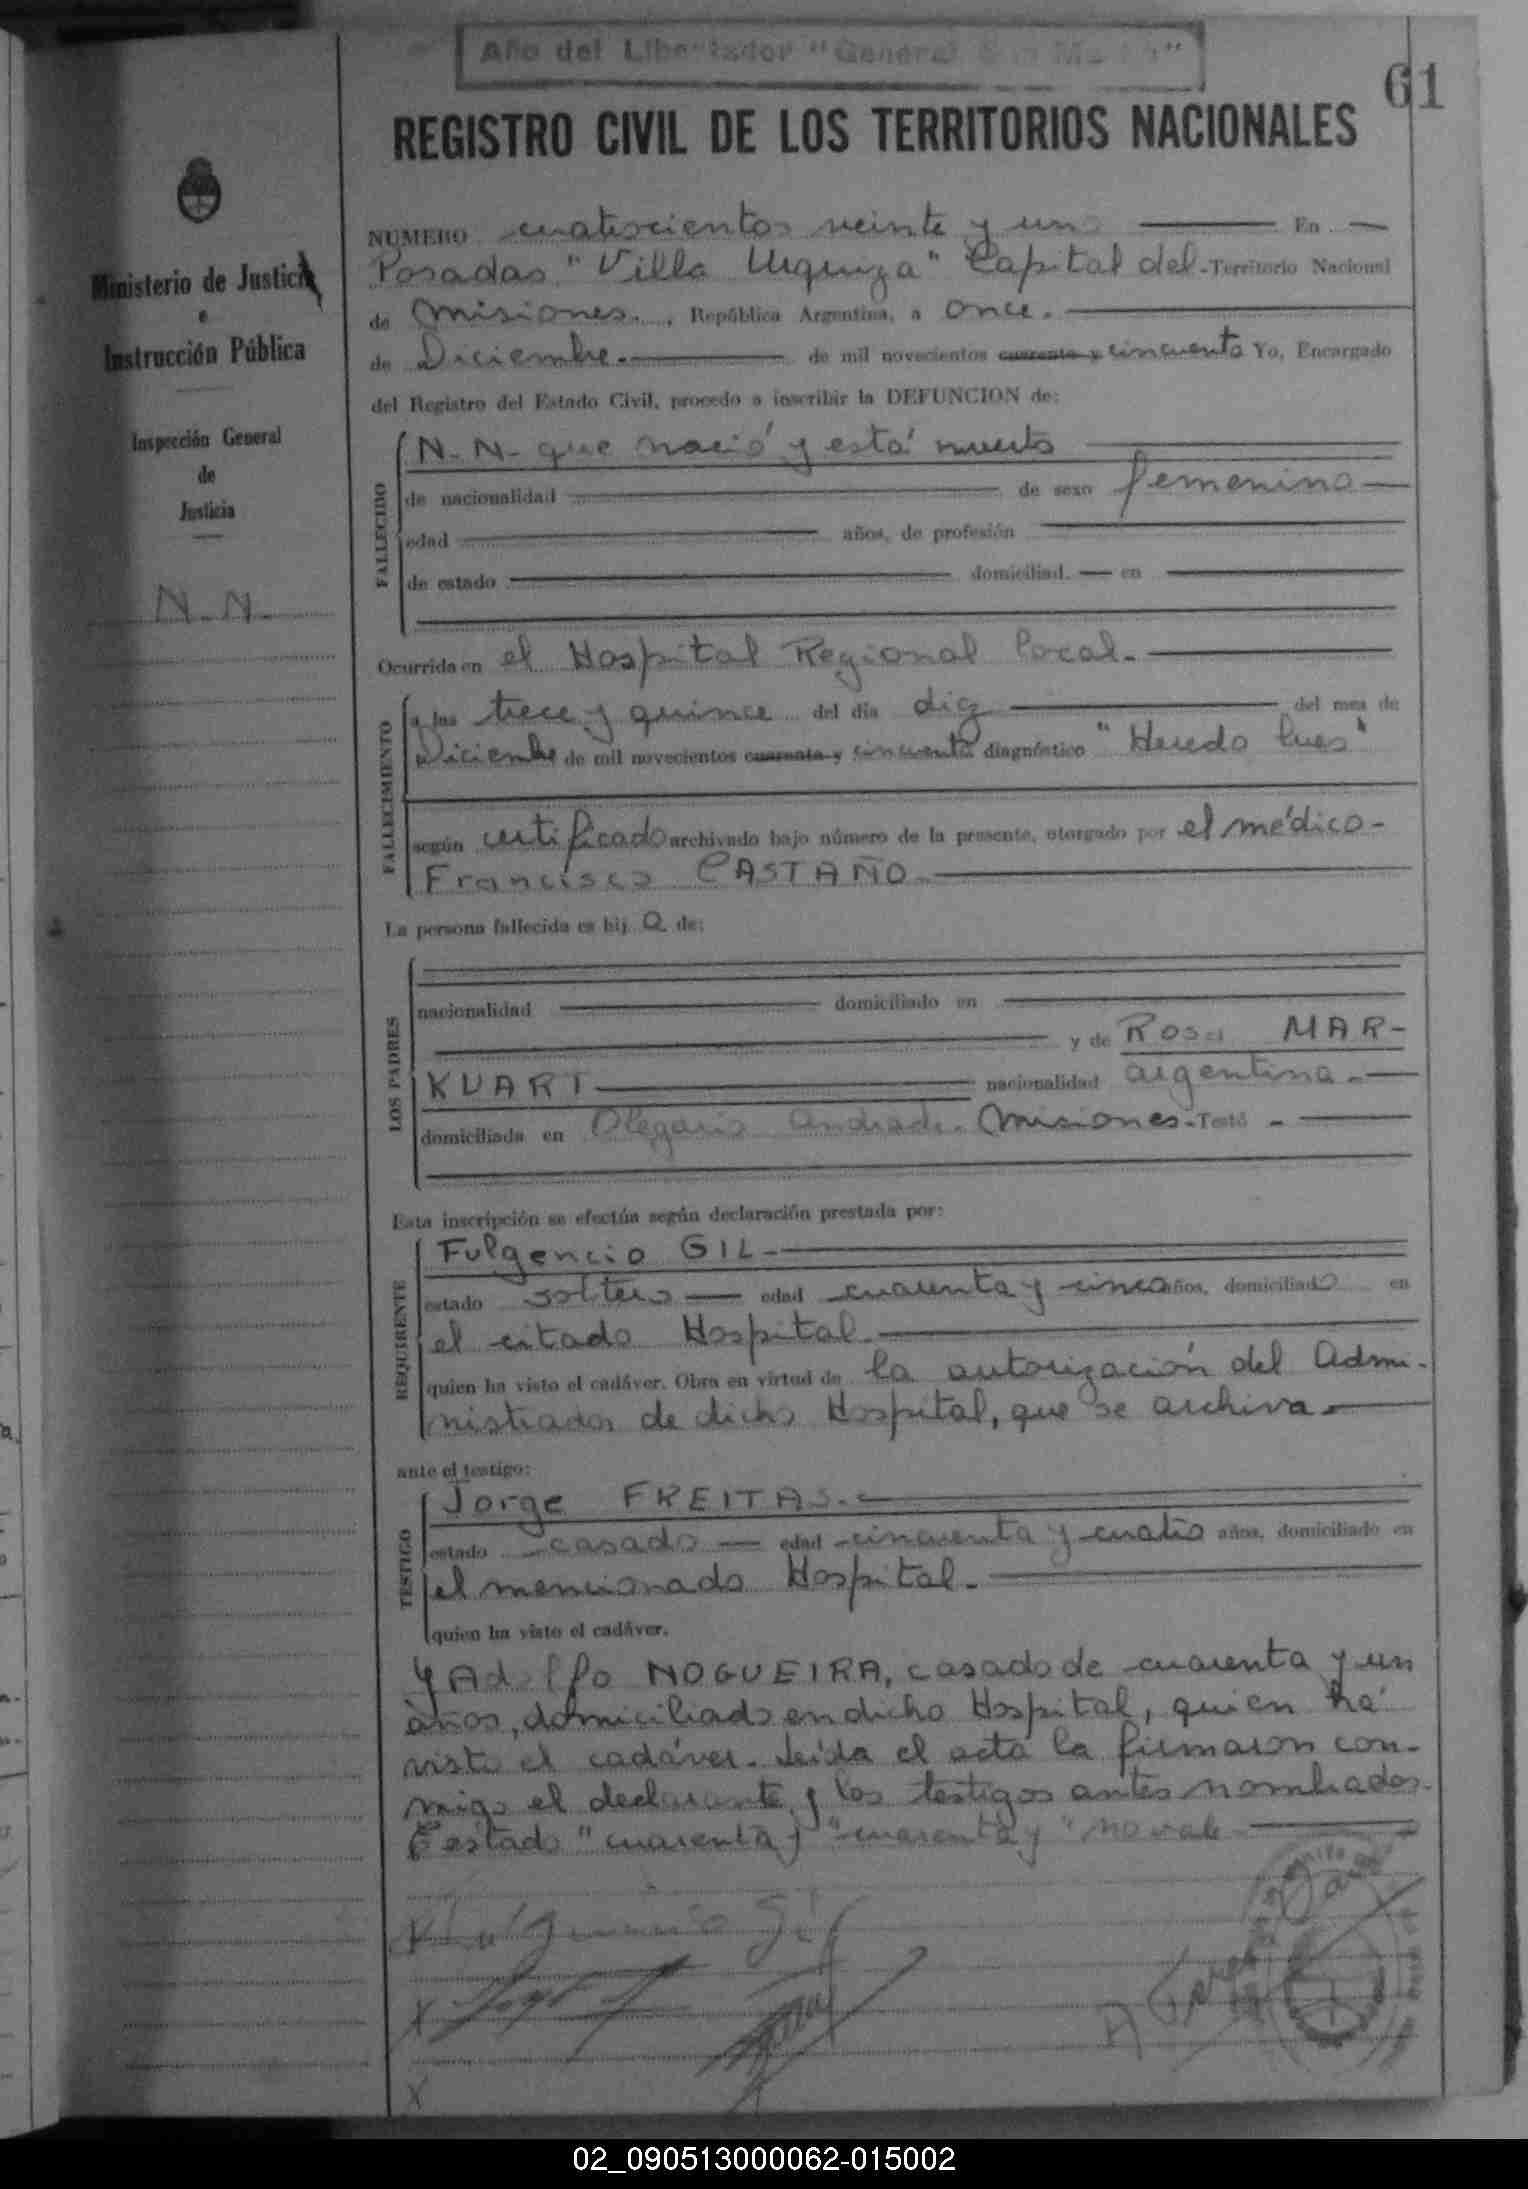 Año del Libertador "General San Martín"
61
REGISTRO CIVIL DE LOS TERRITORIOS NACIONALES
Ministerio de Justicia
e
Instrucción Pública
Inspección General
de
Justicia
N. N.
NUMERO cuatrocientos veinte y uno En
Posadas "Villa Urquiza" Capital del Territorio Nacional
de Misiones., República Argentina, a once.
de Diciembre. de mil novecientos cuarenta y cincuenta Yo, Encargado
del Registro del Estado Civil, procedo a inscribir la DEFUNCION de:
FALLECIDO
N. N- que nació y está muerto
de nacionalidad de sexo femenino
edad años, de profesión
de estado domiciliad. en
Ocurrida en el Hospital Regional local.
FALLECIMIENTO
a las trece y quince del día diez del mes de
Diciembre de mil novecientos cuarenta y cincuenta diagnóstico "Heredo lues"
según certificado archivado bajo número de la presente, otorgado por el médico-
Francisco CASTAÑO.
La persona fallecida es hij a de:
LOS PADRES
nacionalidad domiciliado en
y de Rosa MAR-
KUART nacionalidad argentina.
domiciliada en Olegario Andrade. Misiones. Testó -
Esta inscripción se efectúa según declaración prestada por:
REQUIRENTE
Fulgencio GIL-
estado soltero edad cuarenta y cinco años, domiciliado en
el citado Hospital.
quien ha visto el cadáver. Obra en virtud de la autorización del Admi-
nistrador de dicho Hospital, que se archiva.
ante el testigo:
TESTIGO
Jorge FREITAS.
estado casado edad cincuenta y cuatro años, domiciliado en
el mencionado Hospital.
quien ha visto el cadáver.
Y Adolfo NOGUEIRA, casado de cuarenta y un
años, domiciliado en dicho Hospital, quien há
visto el cadáver. Leída el acta la firmaron con-
migo el declarante y los testigos antes nombrados.
Testado "cuarenta y" "cuarenta y" no vale
Fulgencio Gil
02_090513000062-015002